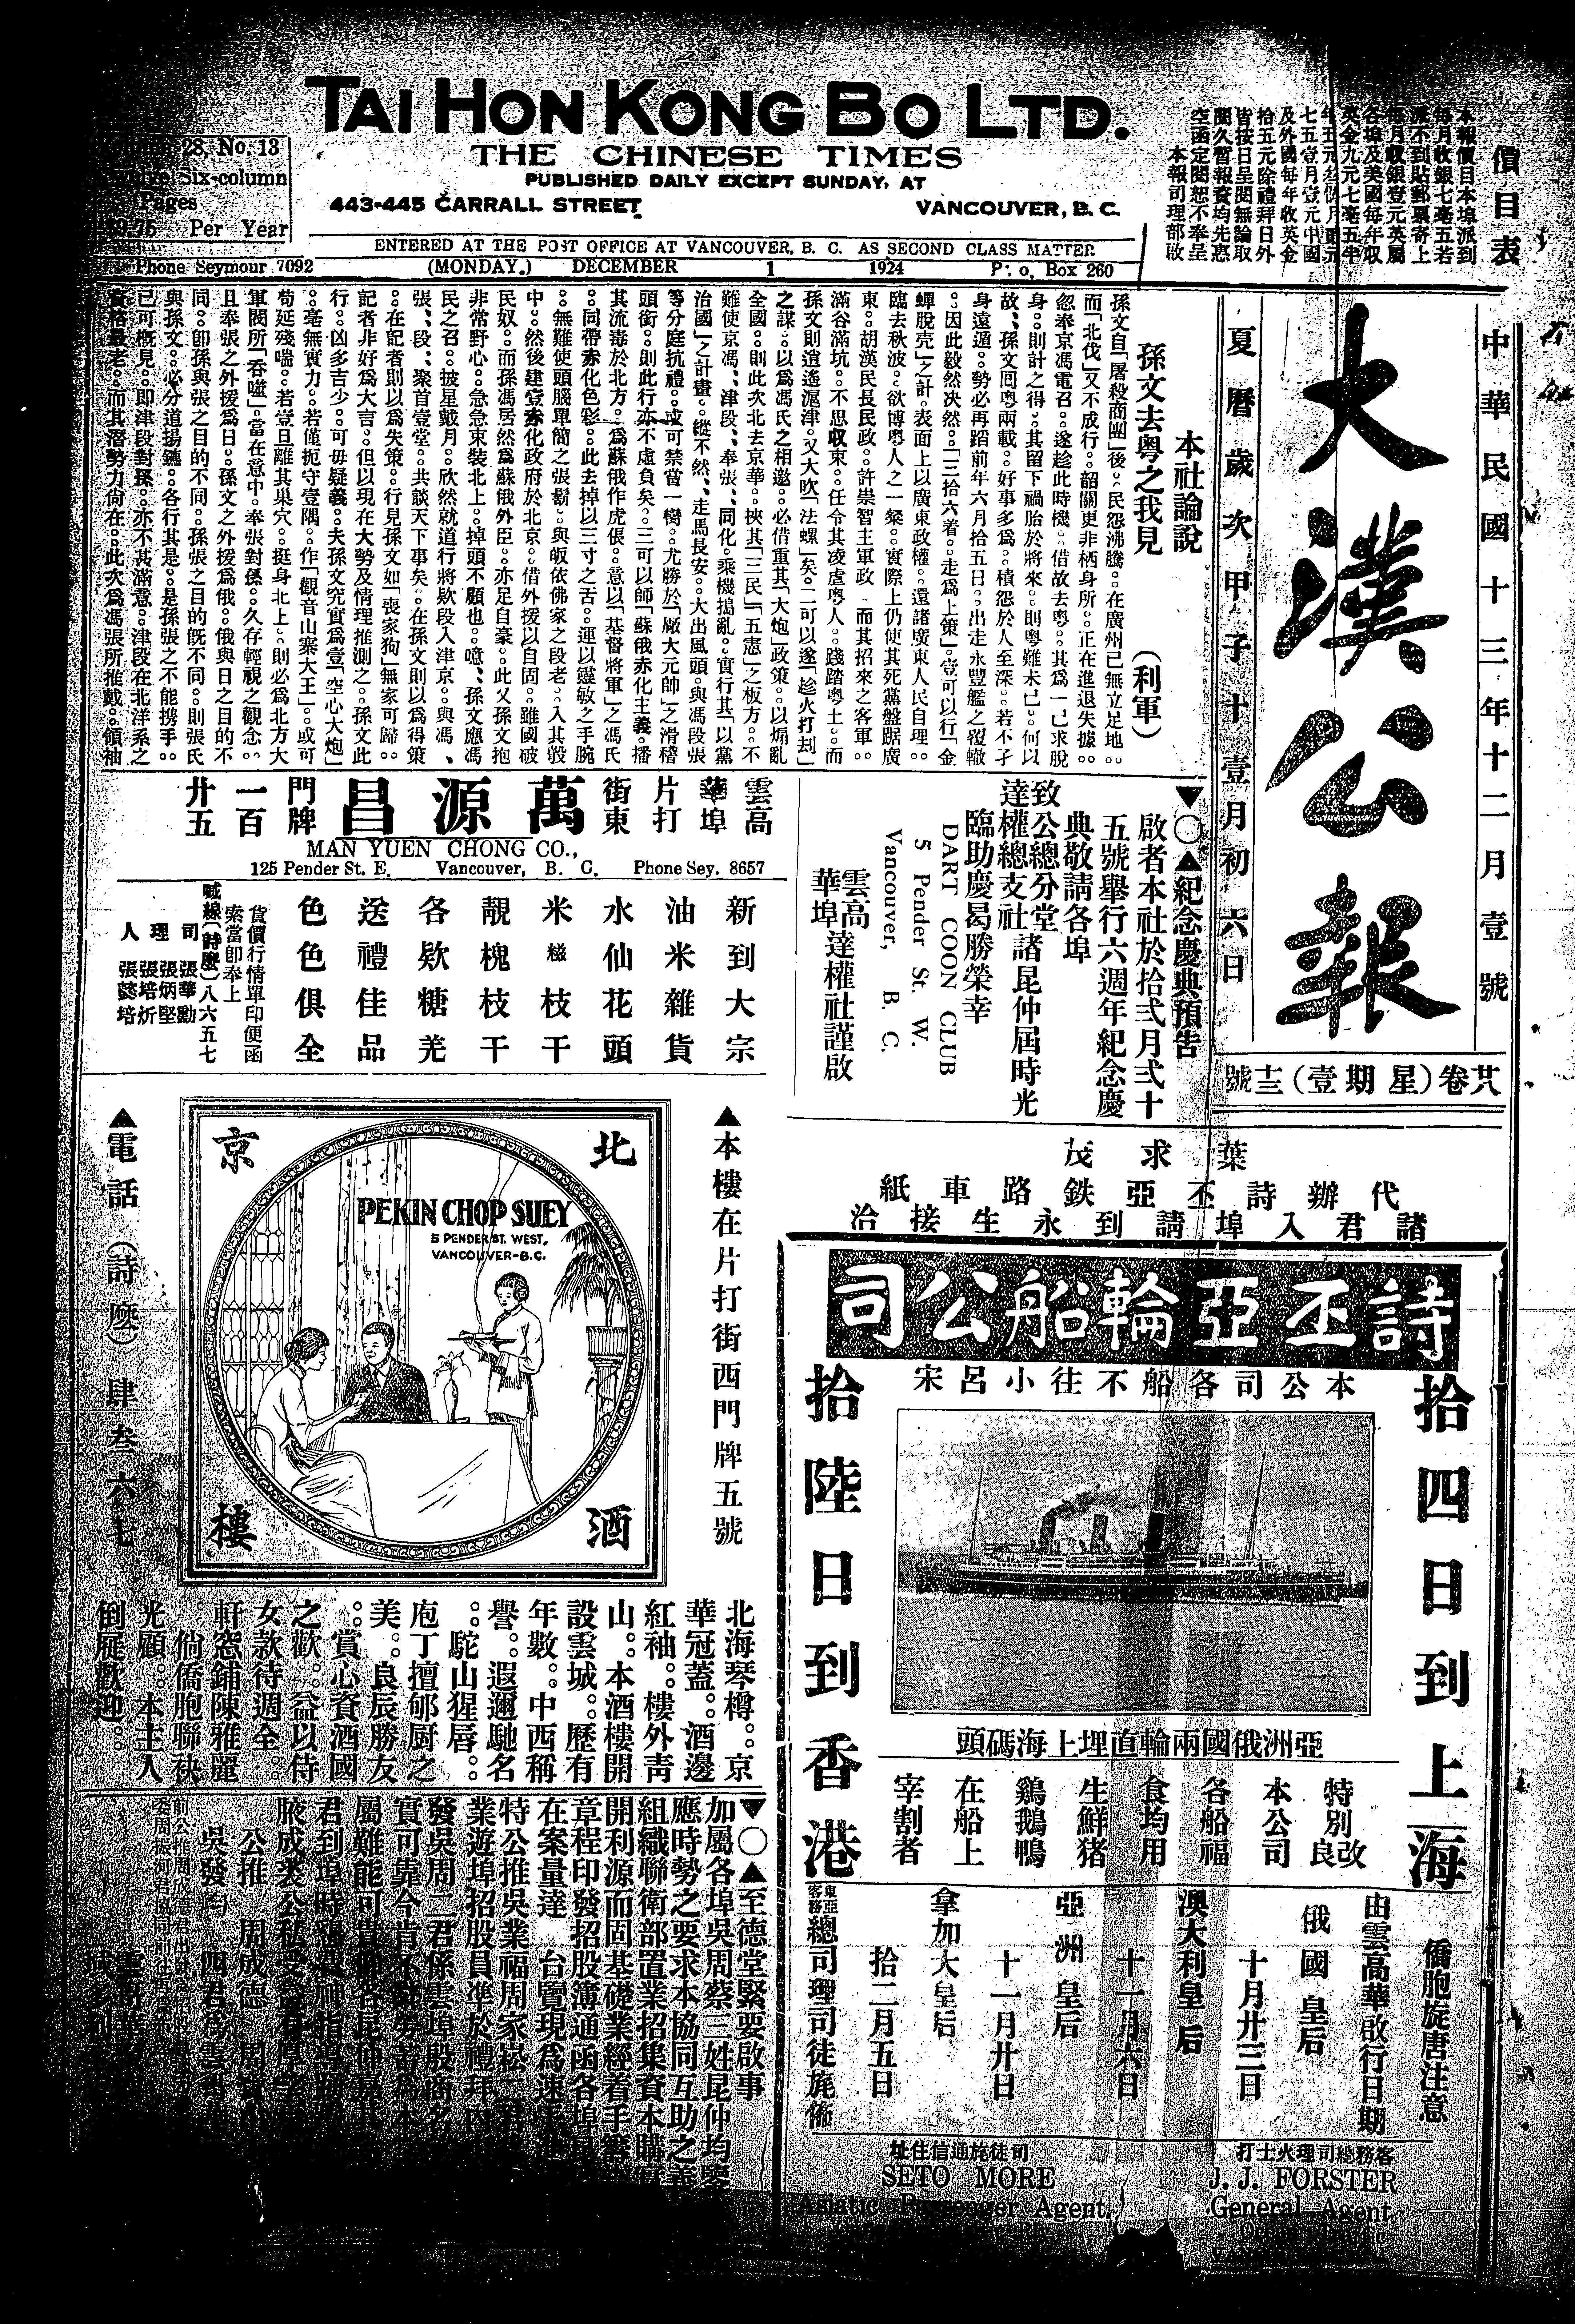 TAI HON KONG BO LTD.
THE CHINESE TIMES
PUBLISHED DAILY EXCEPT SUNDAY, AT
443-445 CARRALL STREET VANCOUVER, B. C.
28, No. 13
Six-column
Pages
Per Year
ENTERED AT THE POST OFFICE AT VANCOUVER, B. C. AS SECOND CLASS MATTER
Phone Seymour 7092 (MONDAY.) DECEMBER 1 1924 P. o. Box 260
價目表
本報價目本埠派到
每月收銀七毫五若
派不到貼郵票寄上
每月收銀壹元英屬
各埠及美國每年收
英金九元七毫五半
及外國每年收英金
拾五元除禮拜日外
皆按日呈閱無論取
閱久暫報資均先惠
空函定閱恕不奉呈
本報司理部啟
中華民國十三年十二月壹號
大漢公報
夏曆歲次甲子十壹月初六日
廿八卷(星期壹)十三號
本社論說
孫文去粵之我見 (利軍)
孫文自「屠殺商團」後。民怨沸騰。在廣州已無立足地。
而「北伐」又不成行。韶關更非栖身所。正在進退失據。
忽奉京馮電召。遂趁此時機。借故去粵。其爲一己求脫
身。則計之得。其留下禍胎於將來。則粵難未已。何以
故、孫文囘粵兩載。好事多爲。積怨於人至深。若不孑
身遠遁。勢必再蹈前年六月拾五日。出走永豐艦之覆轍
。因此毅然决然。「三拾六着。走爲上策」壹可以行「金
蟬脫壳」之計。表面上以廣東政權。還諸廣東人民自理。
臨去秋波。欲博粵人之一粲。實際上仍使其死黨盤踞廣
東。胡漢民長民政。許崇智主軍政。而其招來之客軍。
滿谷滿坑。不思收束。任令其凌虐粵人。踐踏粵土。而
孫文則逍遙滬津。又大吹「法螺」矣。二可以遂「趁火打刦」
之謀。以爲馮氏之相邀。必借重其「大炮」政策。以煽亂
全國。則此次北去京華。挾其「三民」「五憲」之板方。不
難使京馮、津段、奉張、同化。乘機搗亂。實行其「以黨
治國」之計畫。縱不然、走馬長安。大出風頭。與馮段張
等分庭抗禮。或可禁臠一臠。尤勝於「廠大元帥」之滑稽
頭銜。則此行亦不虛負矣。三可以師「蘇俄赤化主義」播
其流毒於北方。爲蘇俄作虎倀。意以「基督將軍」之馮氏
。同帶赤化色彩。此去掉以三寸之舌。運以靈敏之手腕
。無難使頭腦單簡之張鬍。與皈依佛家之段老。入其彀
中。然後建壹赤化政府於北京。借外援以自固。雖國破
民奴。而孫馮居然爲蘇俄外臣。亦足自豪。此又孫文抱
非常野心。急急束裝北上。掉頭不顧也。噫、孫文應馮
民之召。披星戴月。欣然就道行將欵段入津京。與馮、
張、段、聚首壹堂。共談天下事矣。在孫文則以爲得策
。在記者則以爲失策。行見孫文如「喪家狗」無家可歸。
記者非好爲大言。但以現在大勢及情理推測之。孫文此
行。凶多吉少。可毋疑義。夫孫文究實爲壹「空心大炮」
。毫無實力。若僅扼守壹隅。作「觀音山寨大王」。或可
苟延殘喘。若壹旦離其巢穴。挺身北上。則必爲北方大
軍閥所「吞噬」。當在意中。奉張對孫。久存輕視之觀念。
且奉張之外援爲日。孫文之外援爲俄。俄與日之目的不
同。卽孫與張之目的不同。孫張之目的既不同。則張氏
與孫文。必分道揚鑣。各行其是。是孫張之不能携手。
已可概見。卽津段對孫。亦不甚滿意。津段在北洋系之
資格最老。而其潛勢力尙在。此次爲馮張所推戴。領袖
▼○▲紀念慶典預告
啟者本社於拾弍月弍十
五號舉行六週年紀念慶
典敬請各埠
致公總分堂
達權總支社 諸昆仲屆時光
臨助慶曷勝榮幸
DART COON CLUB
5 Pender St. W.
Vancouver, B. C.
雲高華埠達權社謹啟
雲高華埠片打街東 萬源昌 門牌一百廿五
MAN YUEN CHONG CO.,
125 Pender St. E. Vancouver, B. C. Phone Sey. 8657
新到大宗
油米雜貨
水仙花頭
米糍枝干
靚槐枝干
各欵糖羌
送禮佳品
色色俱全
貨價行情單印便函
索當卽奉上
喊線(詩麼)八六五七
司理人
張華勳
張炳堅
張培炘
張懿培
葉求茂
代辦詩丕亞鉄路車紙
諸君入埠請到永生接洽
▲本樓在片打街西門牌五號
北京酒樓
PEKIN CHOP SUEY
5 PENDER ST. WEST,
VANCOUVER-B.C.
▲電話(詩麼)肆叁六七
北海琴樽。京
華冠蓋。酒邊
紅袖。樓外靑
山。本酒樓開
設雲城。歷有
年數。中西稱
譽。遐邇馳名
。駝山猩唇。
庖丁擅郇厨之
美。良辰勝友
。賞心資酒國
之歡。益以侍
女款待週全。
軒窓鋪陳雅麗
。倘僑胞聯袂
光顧。本主人
倒屣歡迎。
詩丕亞輪船公司
本公司各船不往小呂宋
拾四日到上海
拾陸日到香港
亞洲俄國兩輪直埋上海碼頭
特別改良
本公司
各船福
食均用
生鮮猪
鷄鵝鴨
在船上
宰割者
僑胞旋唐注意
由雲高華啟行日期
俄國皇后
十月廿三日
澳大利皇后
十一月六日
亞洲皇后
十一月廿日
拿加大皇后
拾二月五日
東亞客務總司理司徒旄佈
客務總司理火士打
J. J. FORSTER
General Agent
司徒旄通信住址
SETO MORE
Asiatic Passenger Agent.
▼○▲至德堂緊要啟事
加屬各埠吳周蔡三姓昆仲均鑒
應時勢之要求本協同互助之義
組織聯衛部置業招集資本購
開利源而固基礎業經着手
章程印發招股簿通函各埠
在案量達 台覽現爲速
特公推吳業福周家崧二
業遊埠招股員凖於禮拜
發吳周二君係雲埠殷商
實可靠今肯
屬難能可貴
君到埠時
腋成裘公私受益
公推 周成德
吳發